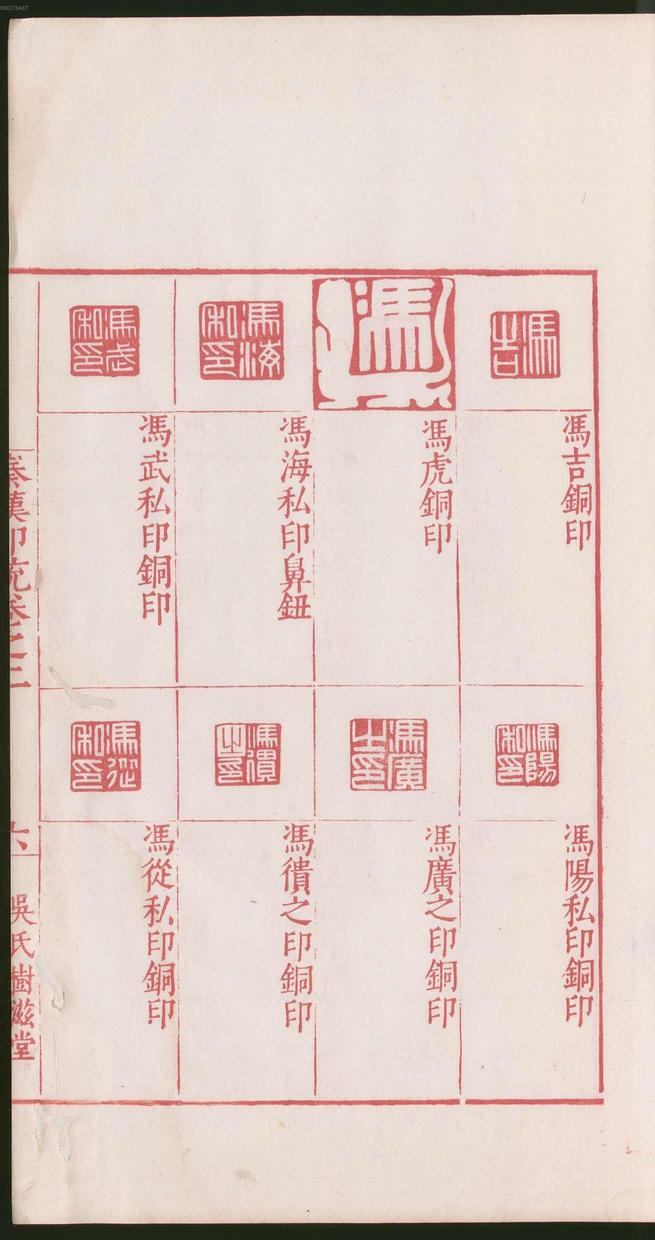 00073467
馮吉
馮吉銅印
馮虎銅印
馮海私印
馮海私印鼻鈕
馮武私印
馮武私印銅印
馮陽私印
馮陽私印銅印
馮廣之印
馮廣之印銅印
馮僓之印
馮僓之印銅印
馮從私印
馮從私印銅印
秦漢印統卷之三
六
吳氏樹滋堂